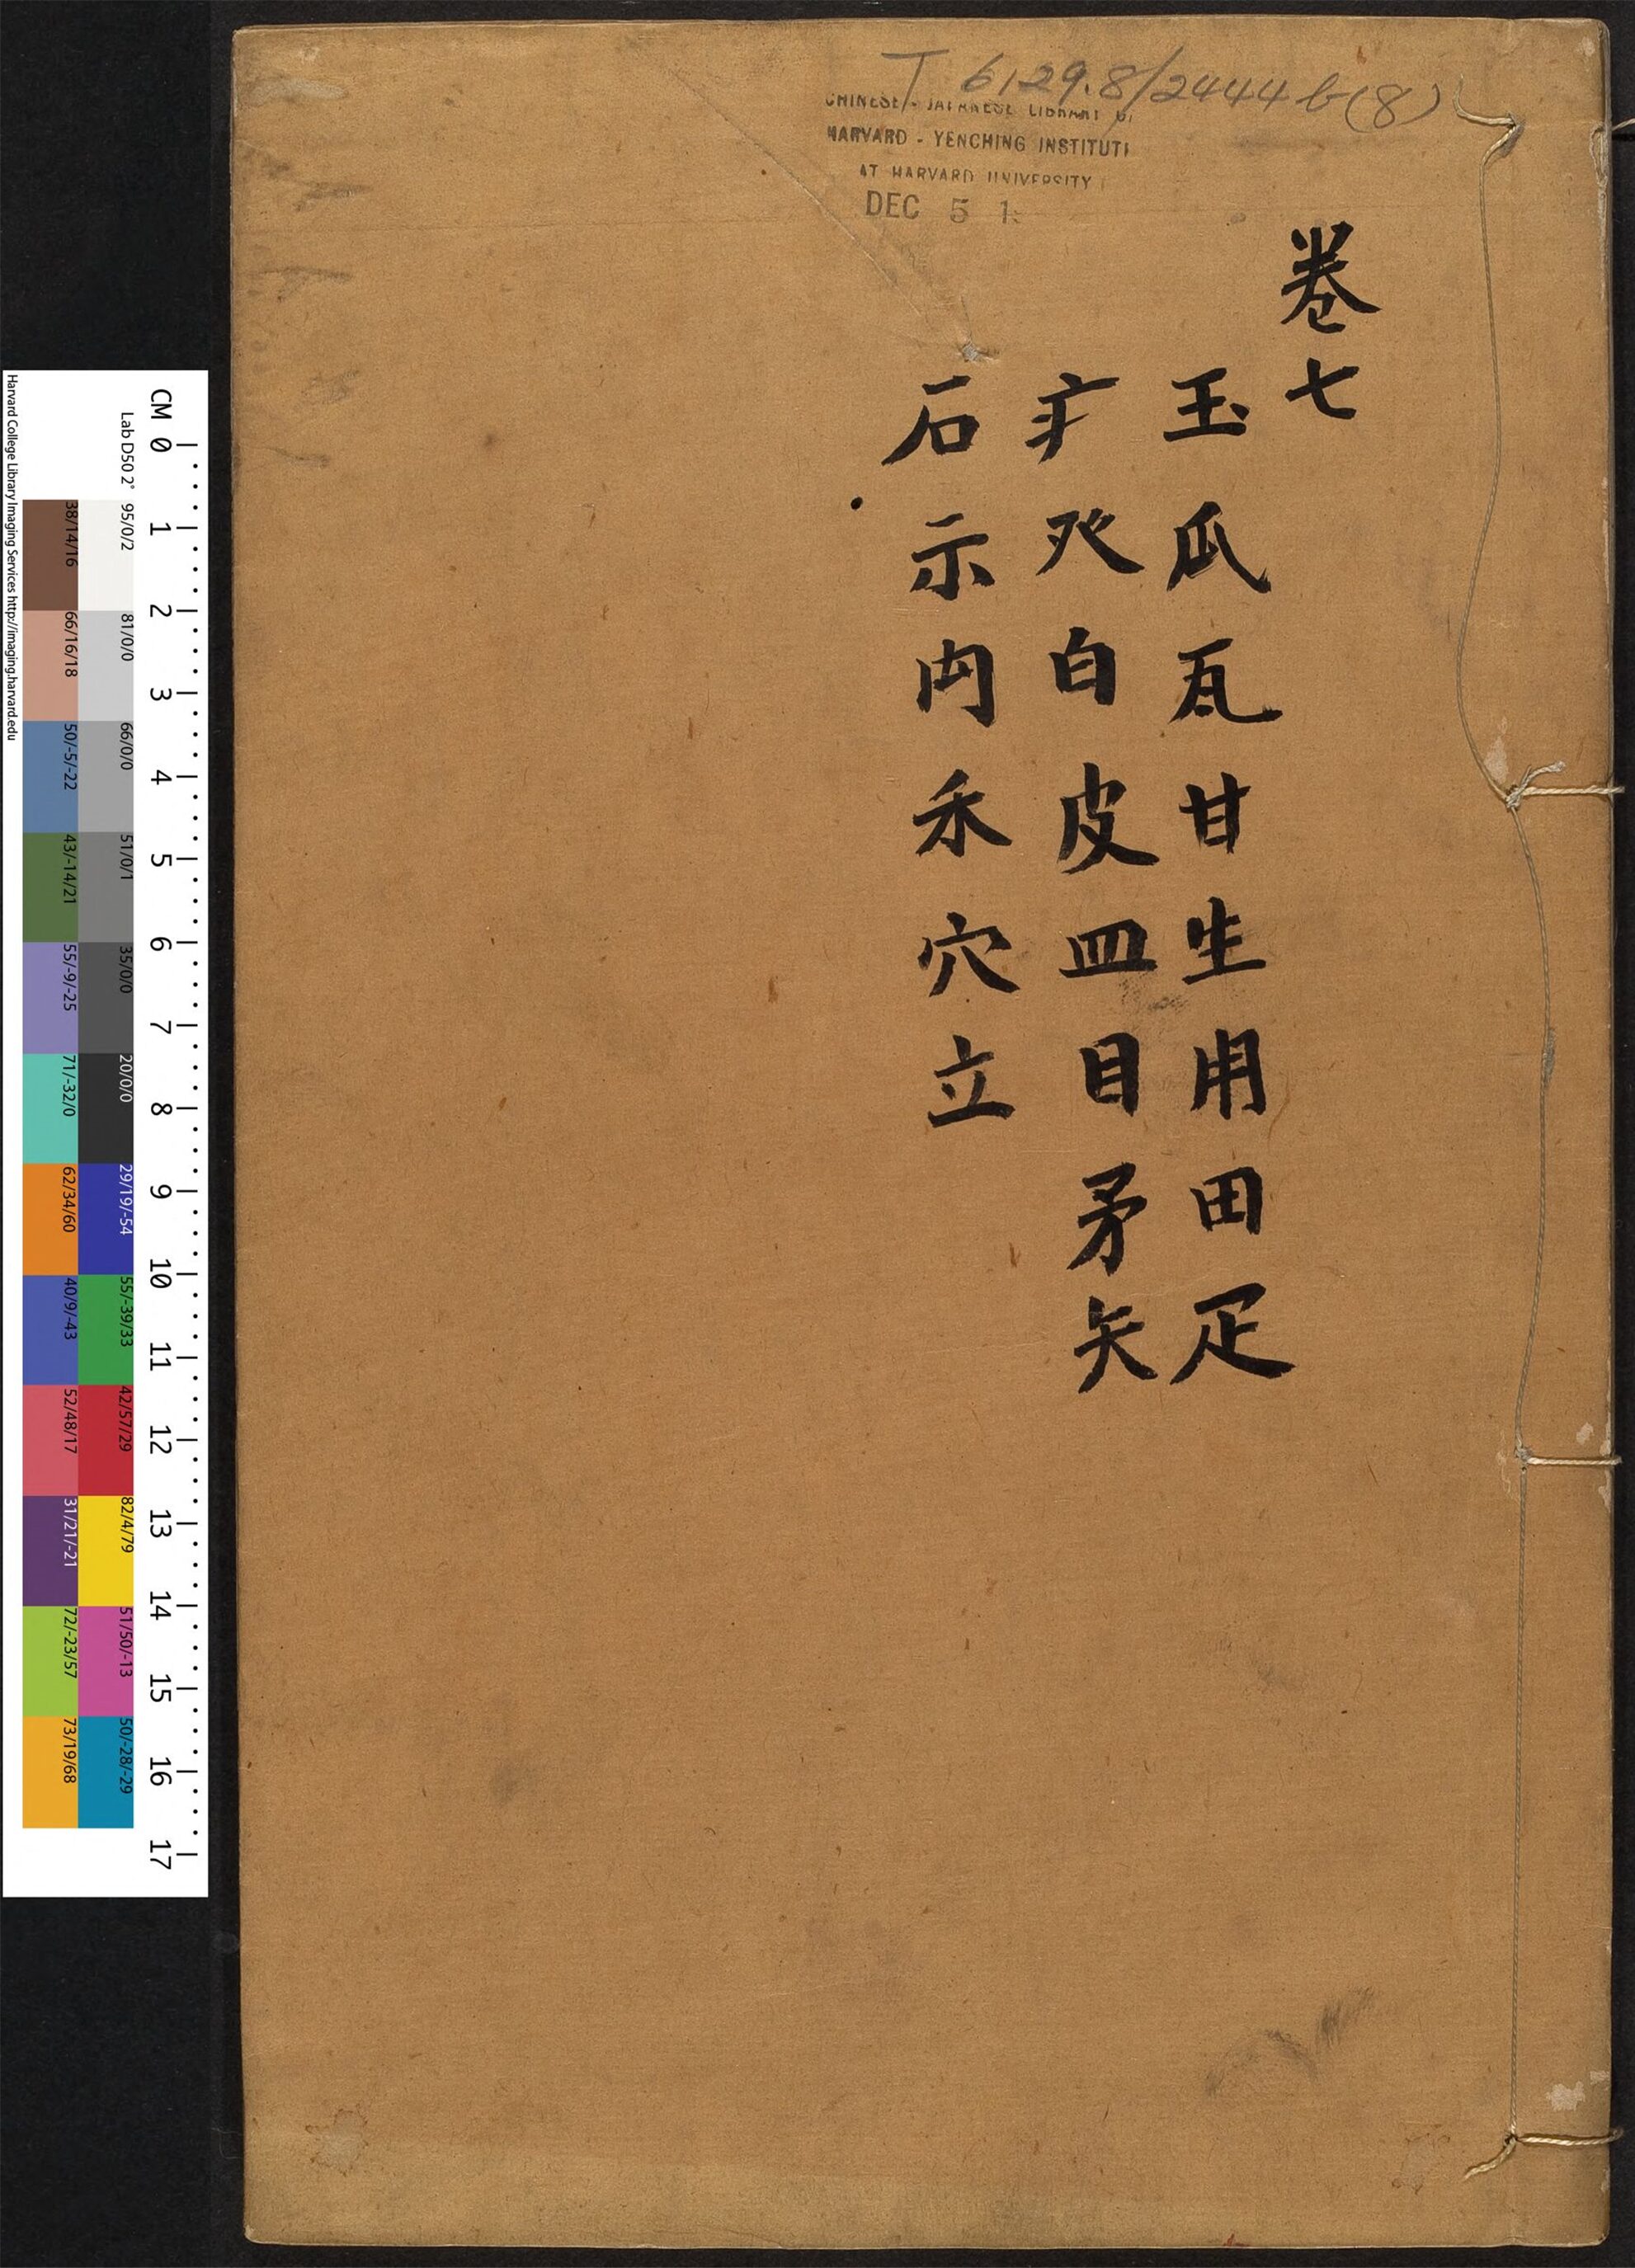 T 6129.8/2444 b(8)
CHINESE - JAPANESE LIBRARY OF
HARVARD - YENCHING INSTITUTI
AT HARVARD UNIVERSITY
DEC 5 1
卷七
玉瓜瓦甘生用田疋
疒癶白皮皿目矛矢
石示禸禾穴立
CM 0 1 2 3 4 5 6 7 8 9 10 11 12 13 14 15 16 17
Lab D50 2° 95/0/2 81/0/0 66/0/0 51/0/1 35/0/0 20/0/0 29/19/-54 55/-39/33 42/57/29 82/4/79 51/50/-13 50/-28/-29
38/14/16 66/16/18 50/-5/-22 43/-14/21 55/-9/-25 71/-32/0 62/34/60 40/9/-43 52/48/17 31/21/-21 72/-23/57 73/19/68
Harvard College Library Imaging Services http://imaging.harvard.edu